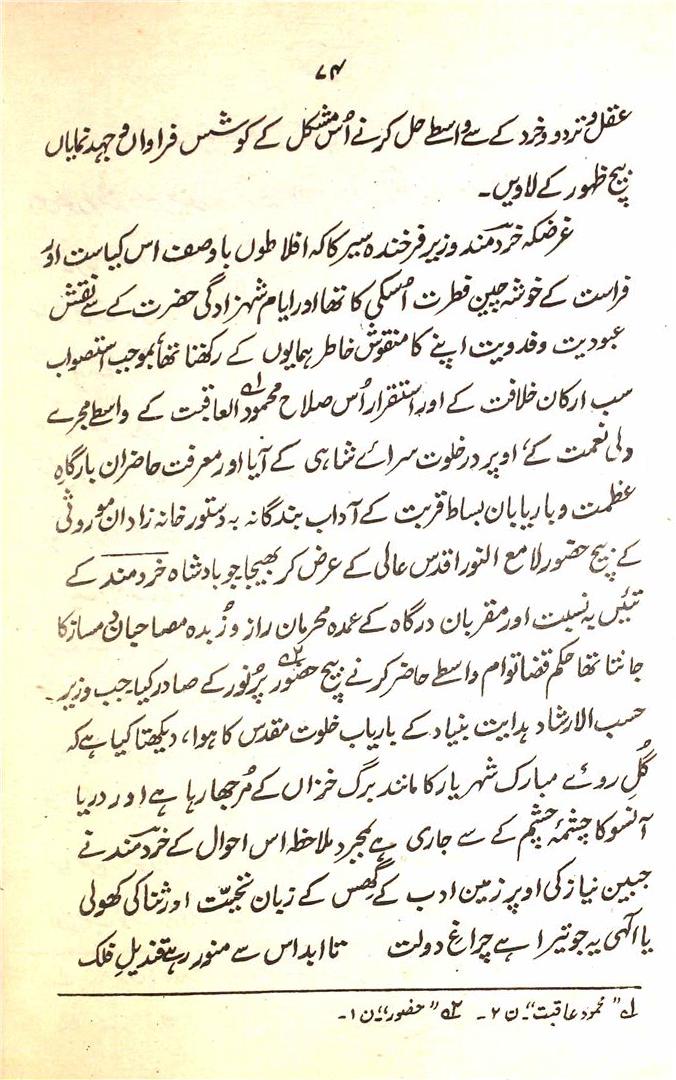 ۷۴
عقل و تردد و خرد کے سے واسطے حل کرنے اُس مشکل کے کوشش فراواں و جہد نمایاں
بیچ ظہور کے لادیں۔
غرضکہ خردمند وزیر فرخندہ سیر کا کہ افلاطوں باوصف اس کیاست اور
فراست کے خوشہ چین فطرت اُسکی کا تھا اور ایام شہزادگی حضرت کے سے نقش
عبودیت و فدویت اپنے کا منقوش خاطر ہمایوں کے رکھتا تھا بموجب استصواب
سب ارکان خلافت کے اور استقرار اُس صلاح محمود العاقبت کے واسطے مجرے
ولی نعمت کے، اوپر در خلوت سرائے شاہی کے آیا اور معرفت حاضران بارگاہِ
عظمت و باریابان بساط قربت کے آداب بندگانہ بہ دستور خانہ زادان موروثی
کے بیچ حضور لامع النور اقدس عالی کے عرض کر بھیجا جو بادشاہ خردمند کے
تئیں بہ نسبت اور مقربان درگاہ کے عمدہ محرمان راز و زُبدہ مصاحبان دمساز کا
جانتا تھا حکم قضا توام واسطے حاضر کرنے بیچ حضور پُرنور کے صادر کیا جب وزیر۔
حسب الارشاد ہدایت بنیاد کے باریاب خلوت مقدس کا ہوا، دیکھتا کیا ہے کہ
گُلِ روئے مبارک شہریار کا مانند برگ خزاں کے مُرجھا رہا ہے اور دریا
آنسو کا چشمۂ چشم کے سے جاری ہے بمجرد ملاحظہ اس احوال کے خردمند نے
جبین نیاز کی اوپر زمین ادب کے گھِس کے زبان تحیّت اور ثنا کی کھولی
یا الٰہی یہ جو تیرا ہے چراغ دولت تا ابد اس سے منور رہے قندیلِ فلک
لے "محمود عاقبت"۔ ن ۲۔ ۲ے "حضور"۔ ن ۱۔